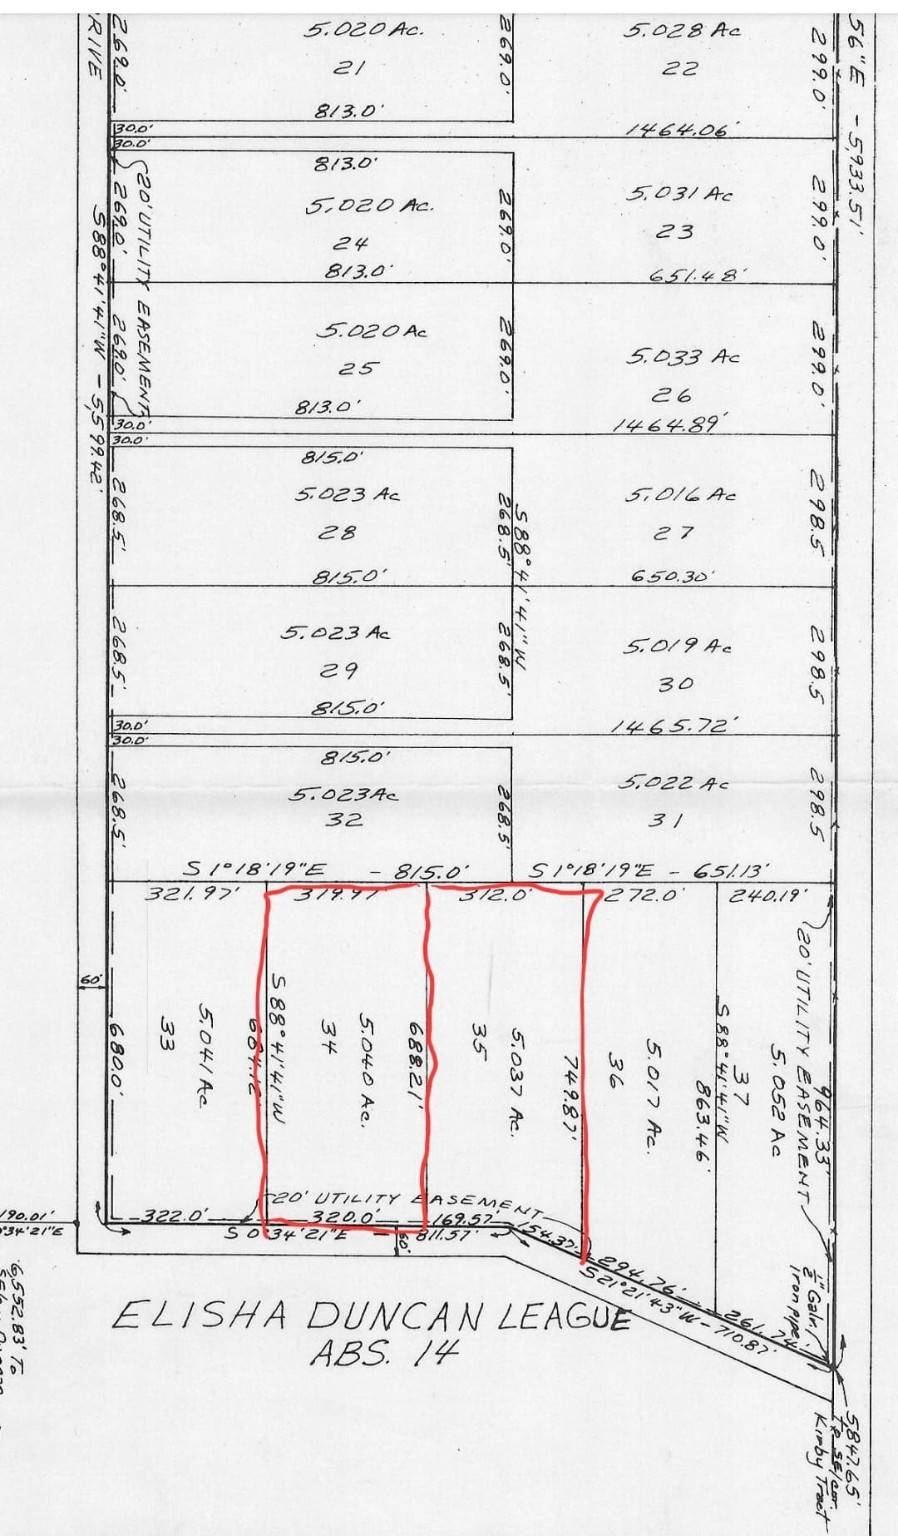 56"E - 5933.51'
RIVE
269.0'
5.020 Ac.
21
813.0'
269.0'
5.028 Ac
22
1464.06'
299.0'
30.0'
30.0'
20' UTILITY EASEMENT
269.0'
S 88°41'41"W - 5,599.42'
813.0'
5.020 Ac.
24
813.0'
269.0'
5.031 Ac
23
651.48'
299.0'
269.0'
5.020 Ac
25
813.0'
269.0'
5.033 Ac
26
1464.89'
299.0'
30.0'
30.0'
268.5'
815.0'
5.023 Ac
28
815.0'
268.5'
S 88°41'41"W
5.016 Ac
27
650.30'
298.5
268.5'
5.023 Ac
29
815.0'
268.5'
5.019 Ac
30
1465.72'
298.5
30.0'
30.0'
268.5'
815.0'
5.023 Ac
32
268.5'
5.022 Ac
31
298.5
S 1°18'19"E - 815.0'
S 1°18'19"E - 651.13'
321.97'
319.97'
312.0'
272.0'
240.19'
60'
680.0'
33
5.041 Ac
684.12'
S 88°41'41"W
34
5.040 Ac.
688.21'
35
5.037 Ac.
749.87'
36
5.017 Ac.
863.46'
S 88°41'41"W
37
5.052 Ac
20' UTILITY EASEMENT
964.33'
20' UTILITY EASEMENT
322.0'
320.0'
169.57'
154.37'
294.76'
261.74'
S 0°34'21"E - 811.57'
60'
S 21°21'43"W - 710.87'
190.01'
°34'21"E
1/2" Galv.
iron pipe
ELISHA DUNCAN LEAGUE
ABS. 14
6,552.83' To
5847.65'
To SE/cor
Kirby Tract